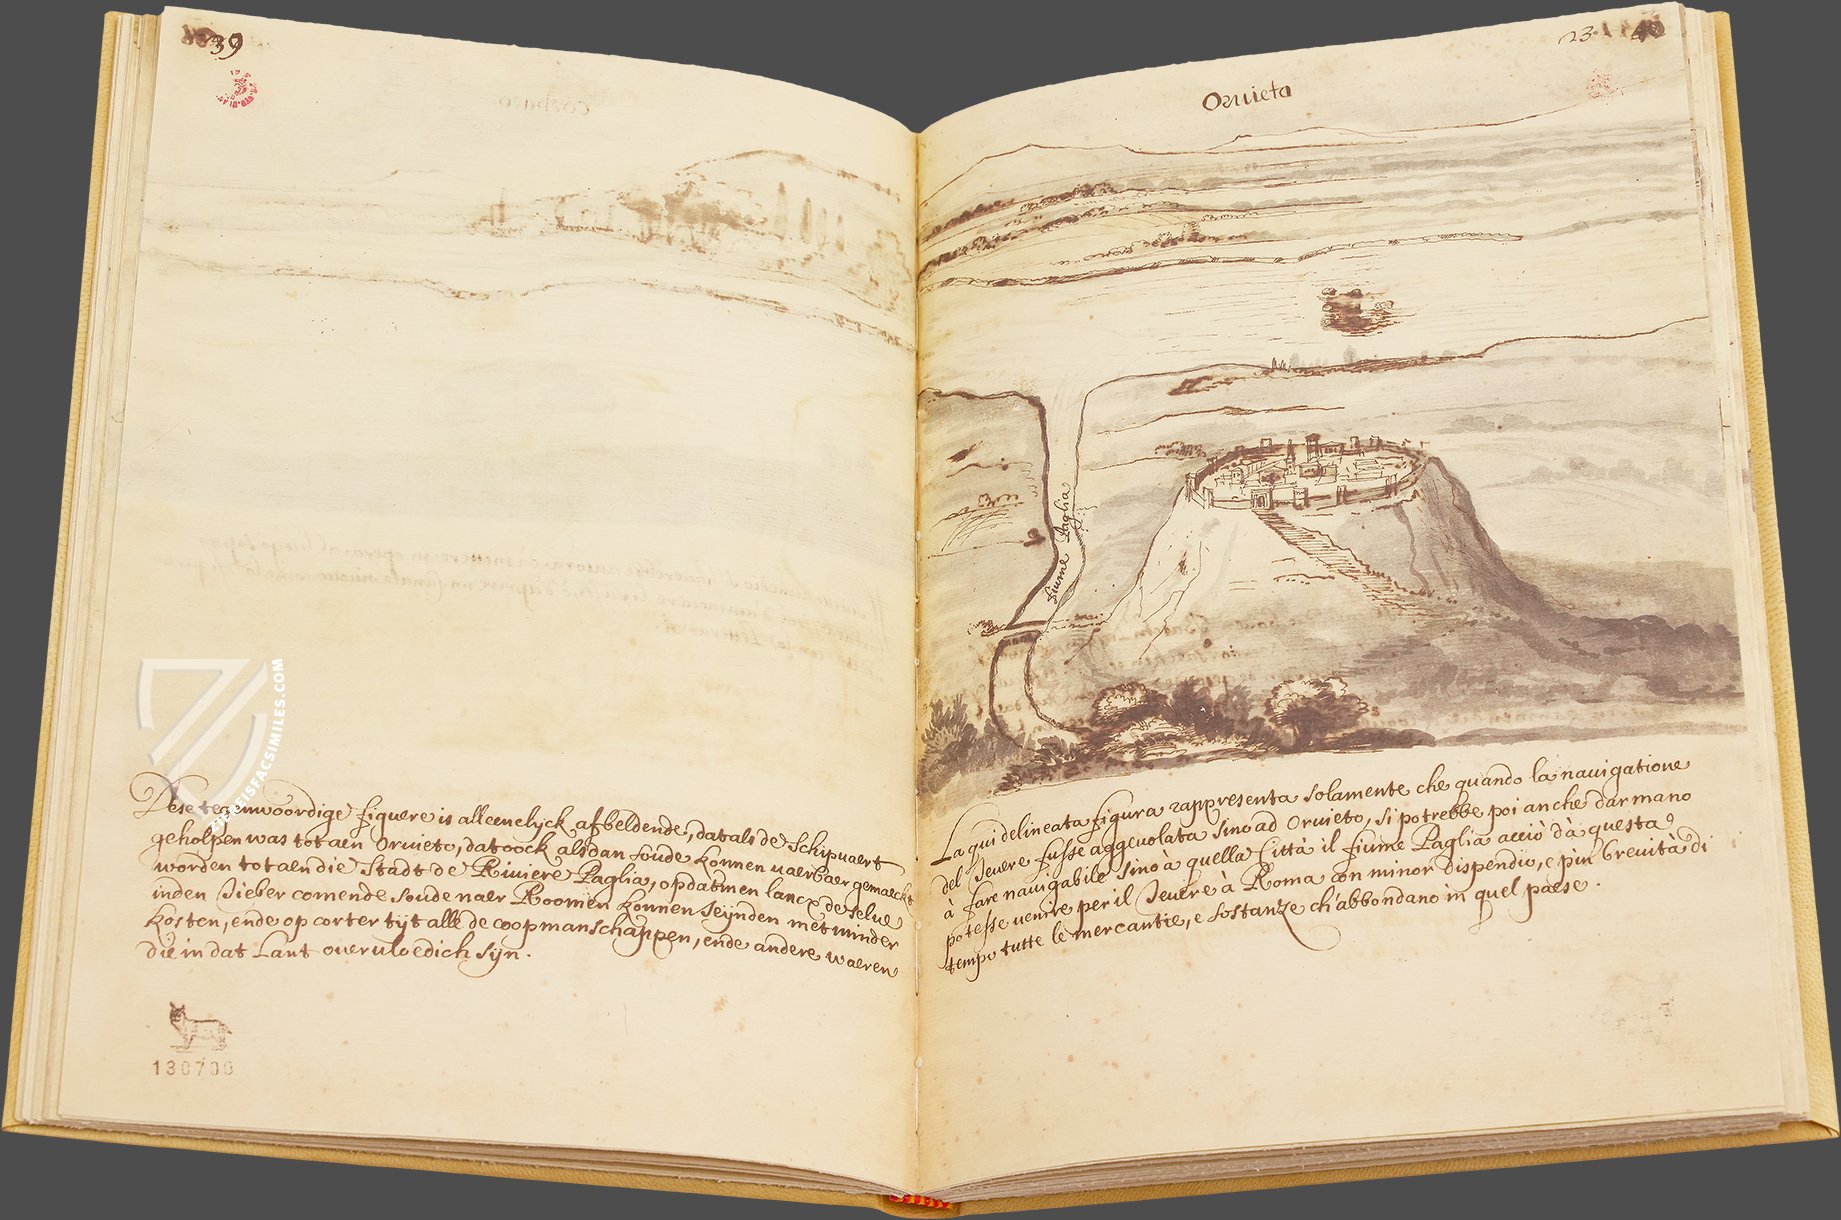 39
Dese tegenwoordige figuere is alleenelyck afbeldende, dat als de Schipvaert
geholpen was tot aen Orvieto, dat oock alsdan soude konnen vaerbaer gemaeckt
worden tot aen die Stadt de Riviere Paglia, op dat men lancx de selve
inden Tieber comende soude naer Roomen konnen seynden met minder
kosten, ende op corter tijt alle de coopmanschappen, ende andere waeren
die in dat Lant overvloedich sijn.
130700
ZIEREISFACSIMILES.COM
23.
40
Orvieto
fiume Paglia
La qui delineata figura rappresenta solamente che quando la navigatione
del Tevere fusse aggevolata sino ad Orvieto, si potrebbe poi anche dar mano
à fare navigabile sino à quella Città il fiume Paglia acciò dà questa
potesse venire per il Tevere à Roma con minor dispendio, e più brevità di
tempo tutte le mercantie, e sostanze ch'abbondano in quel paese.